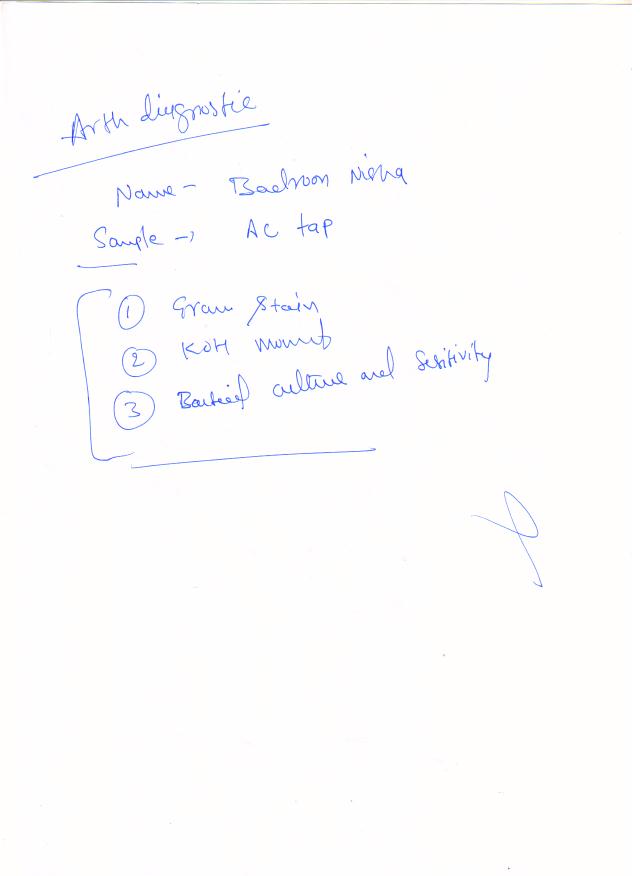 Arth diagnostic
Name - Badroon nisha
Sample → AC tap
1 Gram Stain
2 KOH mount
3 culture and Sesitivity